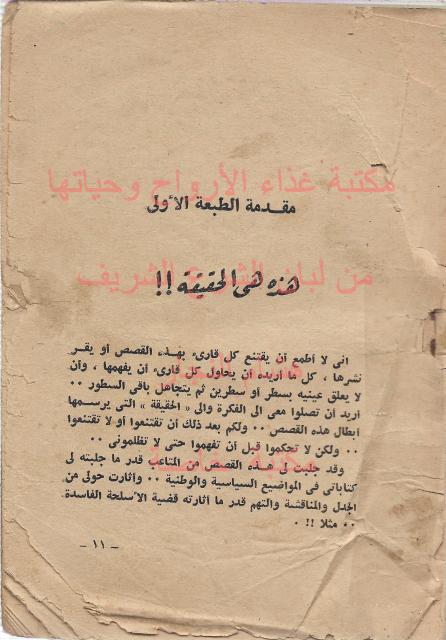 مكتبة غذاء الأرواح وحياتها
مقدمة الطبعة الأولى
من لباب الشرع الشريف
هذه هى الحقيقه !!
انى لا أطمع أن يقتنع كل قارىء بهذه القصص أو يقر
نشرها ، كل ما أريده أن يحاول كل قارىء أن يفهمها ، وأن
لا يعلق عينيه بسطر أو سطرين ثم يتجاهل باقى السطور ٠٠
أريد أن تصلوا معى الى الفكرة والى « الحقيقة » التى يرسمها
أبطال هذه القصص ٠٠ ولكم بعد ذلك أن تقتنعوا أو لا تقتنعوا
٠٠ ولكن لا تحكموا قبل أن تفهموا حتى لا تظلمونى ٠٠
وقد جلبت لى هذه القصص من المتاعب قدر ما جلبته لى
كتاباتى فى المواضيع السياسية والوطنية ٠٠ وأثارت حولى من
الجدل والمناقشة والتهم قدر ما أثارته قضية الأسلحة الفاسدة
٠٠ مثلا !! ٠
– ١١ –